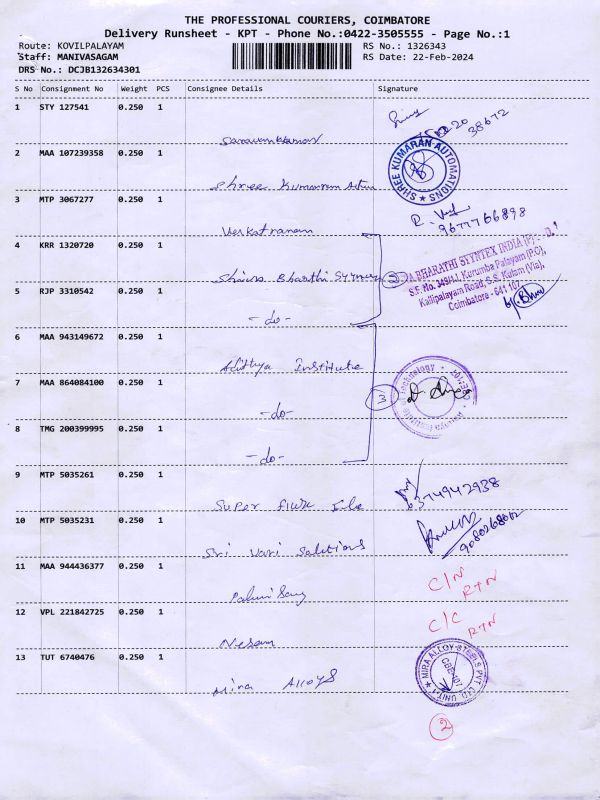 THE PROFESSIONAL COURIERS, COIMBATORE
Delivery Runsheet - KPT - Phone No.:0422-3505555 - Page No.:1
Route: KOVILPALAYAM
RS No.: 1326343
Staff: MANIVASAGAM
RS Date: 22-Feb-2024
DRS No.: DCJB132634301
S No Consignment No Weight PCS Consignee Details Signature
1 STY 127541 0.250 1
38672
Saravanakumar
2 MAA 107239358 0.250 1
SHREE KUMARAN AUTOMATIONS
Shree Kumaran Autom
3 MTP 3067277 0.250 1
9677766898
Venkatraman
4 KRR 1320720 0.250 1
BHARATHI SYYNTEX INDIA (P)
S.F. No. 349/1J, Kurumba Palayam (P.O),
Kallipalayam Road, S.S. Kulam (Via),
Coimbatore - 641 107
Shiva Bharathi Syyntex
2
5 RJP 3310542 0.250 1
- do -
6 MAA 943149672 0.250 1
Adithya Institute
7 MAA 864084100 0.250 1
3
- do -
8 TMG 200399995 0.250 1
- do -
9 MTP 5035261 0.250 1
6374942938
Super
10 MTP 5035231 0.250 1
Sri Vari Solutions
11 MAA 944436377 0.250 1
C/N
RTN
12 VPL 221842725 0.250 1
C/C
RTN
Nesam
13 TUT 6740476 0.250 1
MIRA ALLOY STEELS PVT LTD. UNIT-I
CBE-107
Mira Alloys
2